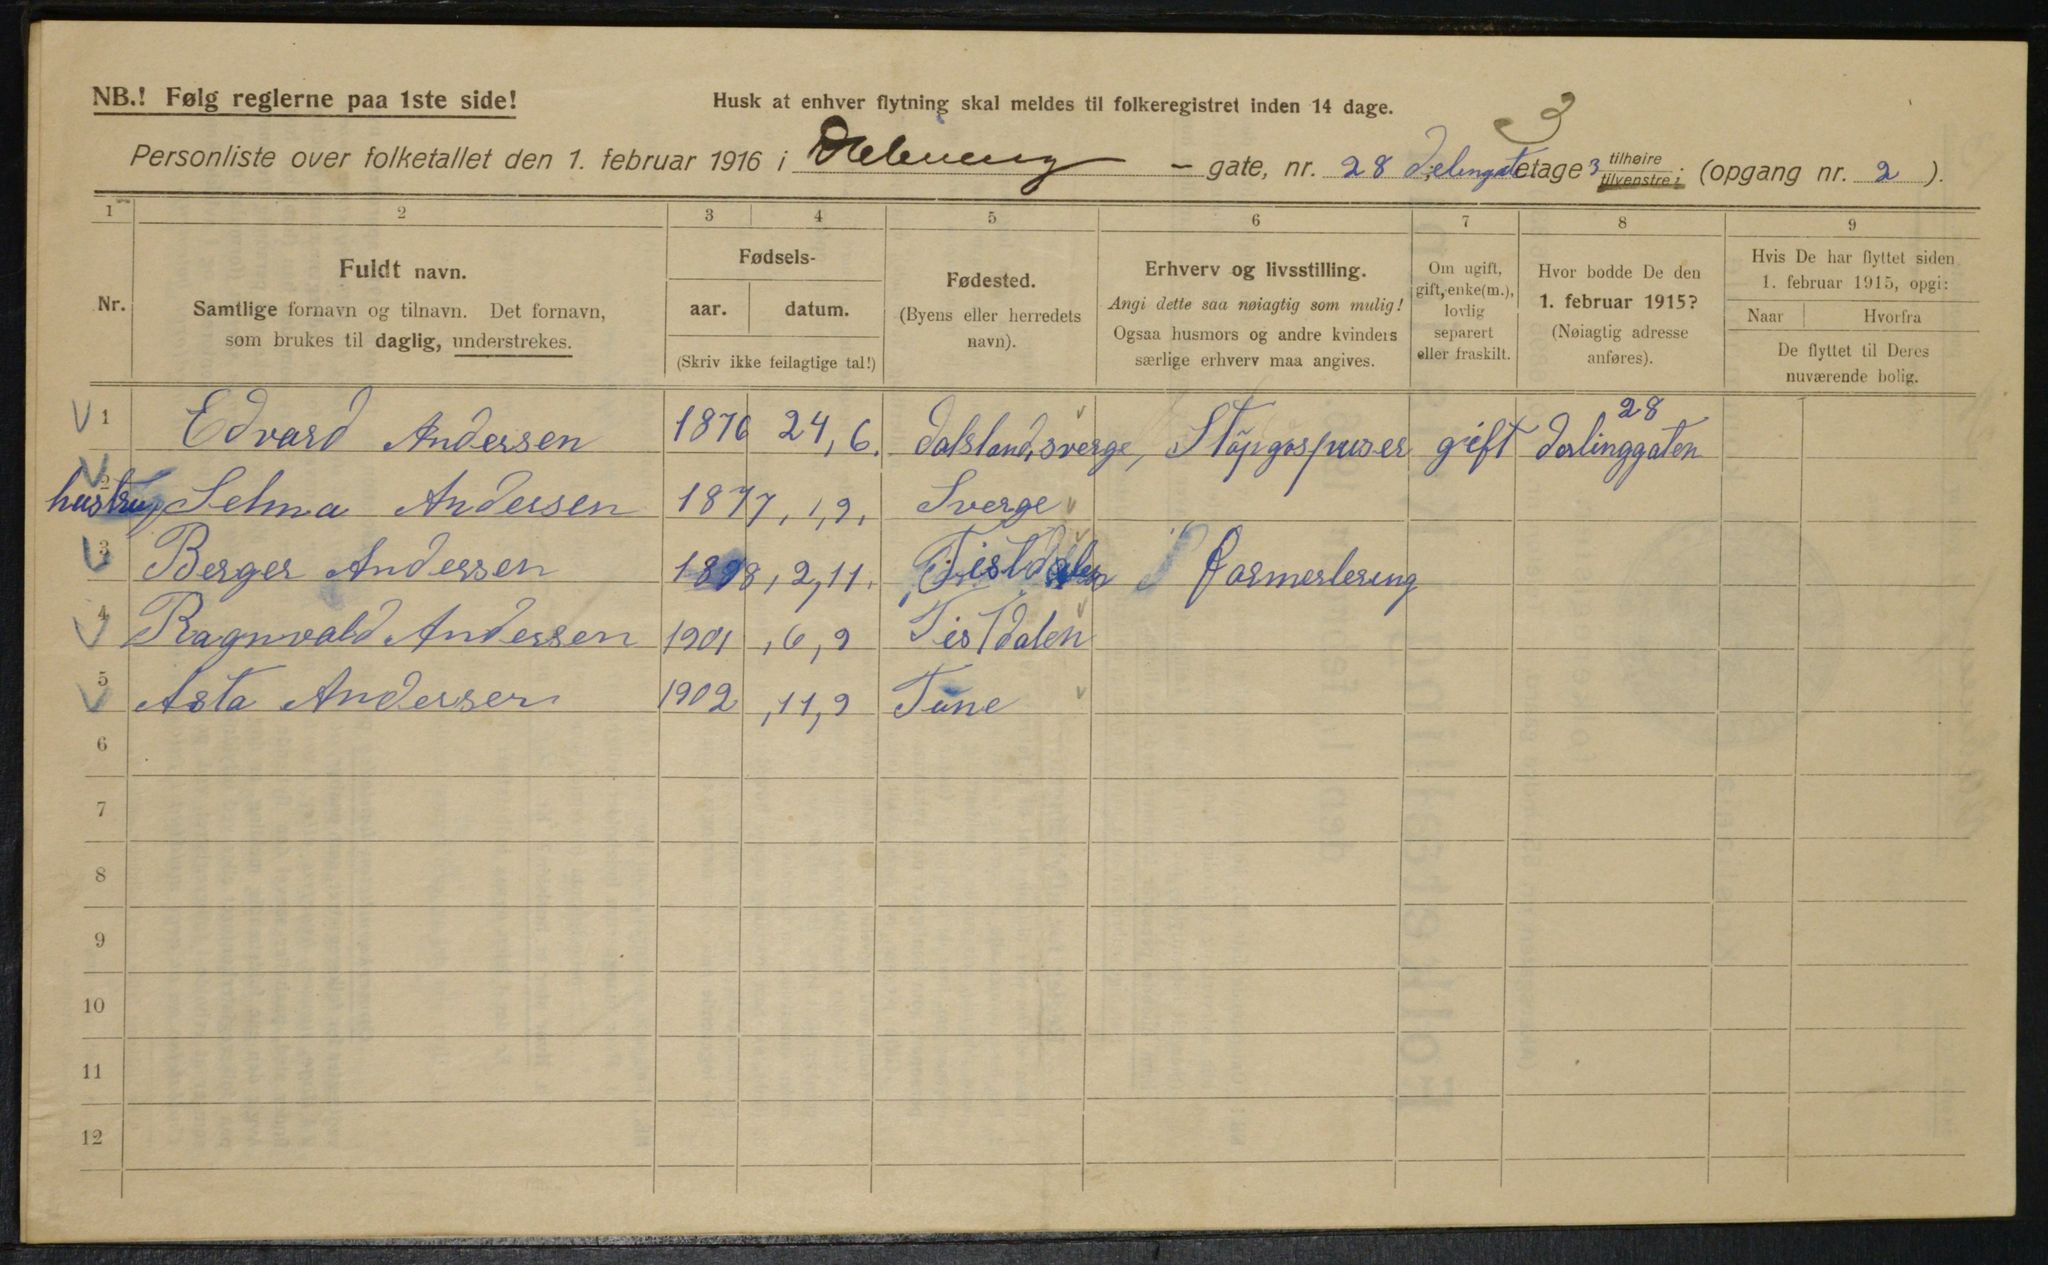 NB.! Følg reglerne paa 1ste side!
Husk at enhver flytning skal meldes til folkeregistret inden 14 dage.
3
Personliste over folketallet den 1. februar 1916 i - gate, nr. 28 etage 3 tilhøire tilvenstre; (opgang nr. 2 ).
1 2 3 4 5 6 7 8 9
Nr.
Fuldt navn.
Samtlige fornavn og tilnavn. Det fornavn,
som brukes til daglig, understrekes.
Fødsels-
aar. datum.
(Skriv ikke feilagtige tal!)
Fødested.
(Byens eller herredets
navn).
Erhverv og livsstilling.
Angi dette saa nøiagtig som mulig!
Ogsaa husmors og andre kvinders
særlige erhverv maa angives.
Om ugift,
gift, enke(m.),
lovlig
separert
eller fraskilt.
Hvor bodde De den
1. februar 1915?
(Nøiagtig adresse
anføres).
Hvis De har flyttet siden
1. februar 1915, opgi:
Naar Hvorfra
De flyttet til Deres
nuværende bolig.
28
1 Edvard Andersen 1876 24, 6. dalsland, sverge, Stöpgospuser gift
2 hustru Selma Andersen 1877, 1, 9, Sverge
3 Berger Andersen 1898, 2, 11. Tistdalen
4 Ragnvald Andersen 1901, 6, 9 Tistdalen
5 Asta Andersen 1902, 11, 9 Tune
6
7
8
9
10
11
12